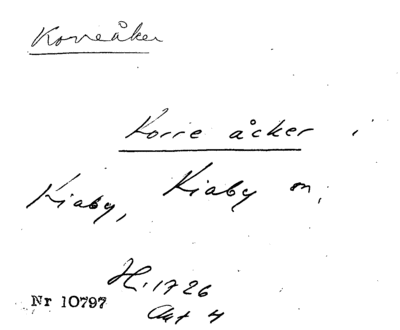 Korreåker
Korre åcker i
Kiaby, Kiaby sn,
H. 1726
Akt 4
Nr 10797